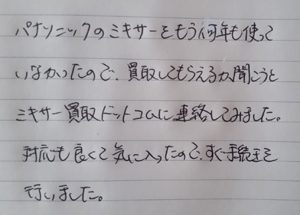 パナソニックのミキサーをもう何年も使って
いなかったので、買取してもらえるか聞こうと
ミキサー買取ドットコムに連絡してみました。
対応も良くて気に入ったので、すぐ手続きを
行いました。